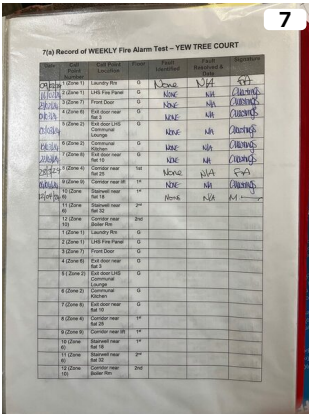 7
7(a) Record of WEEKLY Fire Alarm Test – YEW TREE COURT
Date Call Point Number Call Point Location Floor Fault Identified Fault Resolved & Date Signature
1 (Zone 1) Laundry Rm G None N/A
2 (Zone 1) LHS Fire Panel G NONE N/A
3 (Zone 7) Front Door G NONE N/A
4 (Zone 8) Exit door near flat 3 G NONE N/A
5 (Zone 2) Exit door LHS Communal Lounge G NONE N/A
6 (Zone 2) Communal Kitchen G NONE N/A
7 (Zone 8) Exit door near flat 10 G NONE N/A
8 (Zone 4) Corridor near flat 25 1st None N/A
9 (Zone 9) Corridor near lift 1st NONE N/A
10 (Zone 6) Stairwell near flat 18 1st None N/A
11 (Zone 6) Stairwell near flat 32 2nd
12 (Zone 10) Corridor near Boiler Rm 2nd
1 (Zone 1) Laundry Rm G
2 (Zone 1) LHS Fire Panel G
3 (Zone 7) Front Door G
4 (Zone 8) Exit door near flat 3 G
5 (Zone 2) Exit door LHS Communal Lounge G
6 (Zone 2) Communal Kitchen G
7 (Zone 8) Exit door near flat 10 G
8 (Zone 4) Corridor near flat 25 1st
9 (Zone 9) Corridor near lift 1st
10 (Zone 6) Stairwell near flat 18 1st
11 (Zone 6) Stairwell near flat 32 2nd
12 (Zone 10) Corridor near Boiler Rm 2nd